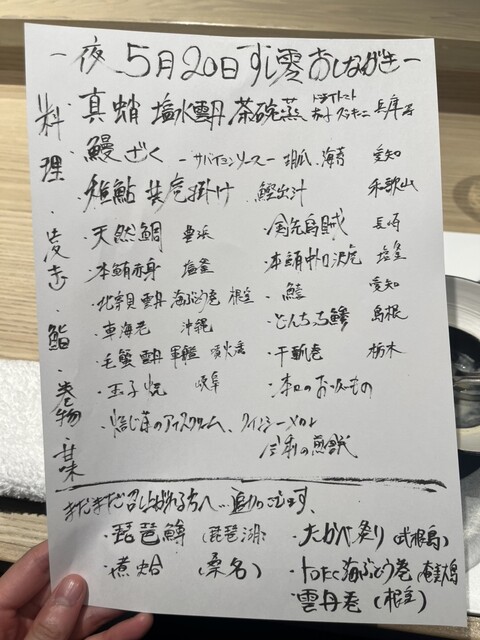 一夜 5月20日 すし 零 おしながき一
料理・凌ぎ・鮨・巻物・甘味
真蛸 塩水雲丹 茶碗蒸 ドライトマト ズッキーニ 兵庫
鰻ざく ーサバイヨンソースー 胡瓜 海苔 愛知
稚鮎 共肝掛け 鰹出汁 和歌山
・天然鯛 豊浜 ・剣先烏賊 長崎
・本鮪赤身 塩釜 ・本鮪中トロ 塩釜
・北寄貝 雲丹 海ぶどう巻 根室 ・鱚 愛知
・車海老 沖縄 ・どんちっち鯵 島根
・毛蟹 雲丹 軍艦 噴火湾 ・干瓢巻 栃木
・玉子焼 岐阜 ・本日のお吸いもの
・のアイスクリーム、クインシーメロン
の煎茶
まだまだ召し上がれる方へ…追加ございます、
・琵琶鱒 (琵琶湖) ・たかべ炙り (式根島)
・煮蛤 (桑名) ・トロたく海ぶどう巻 (奄美大島)
・雲丹巻 (根室)